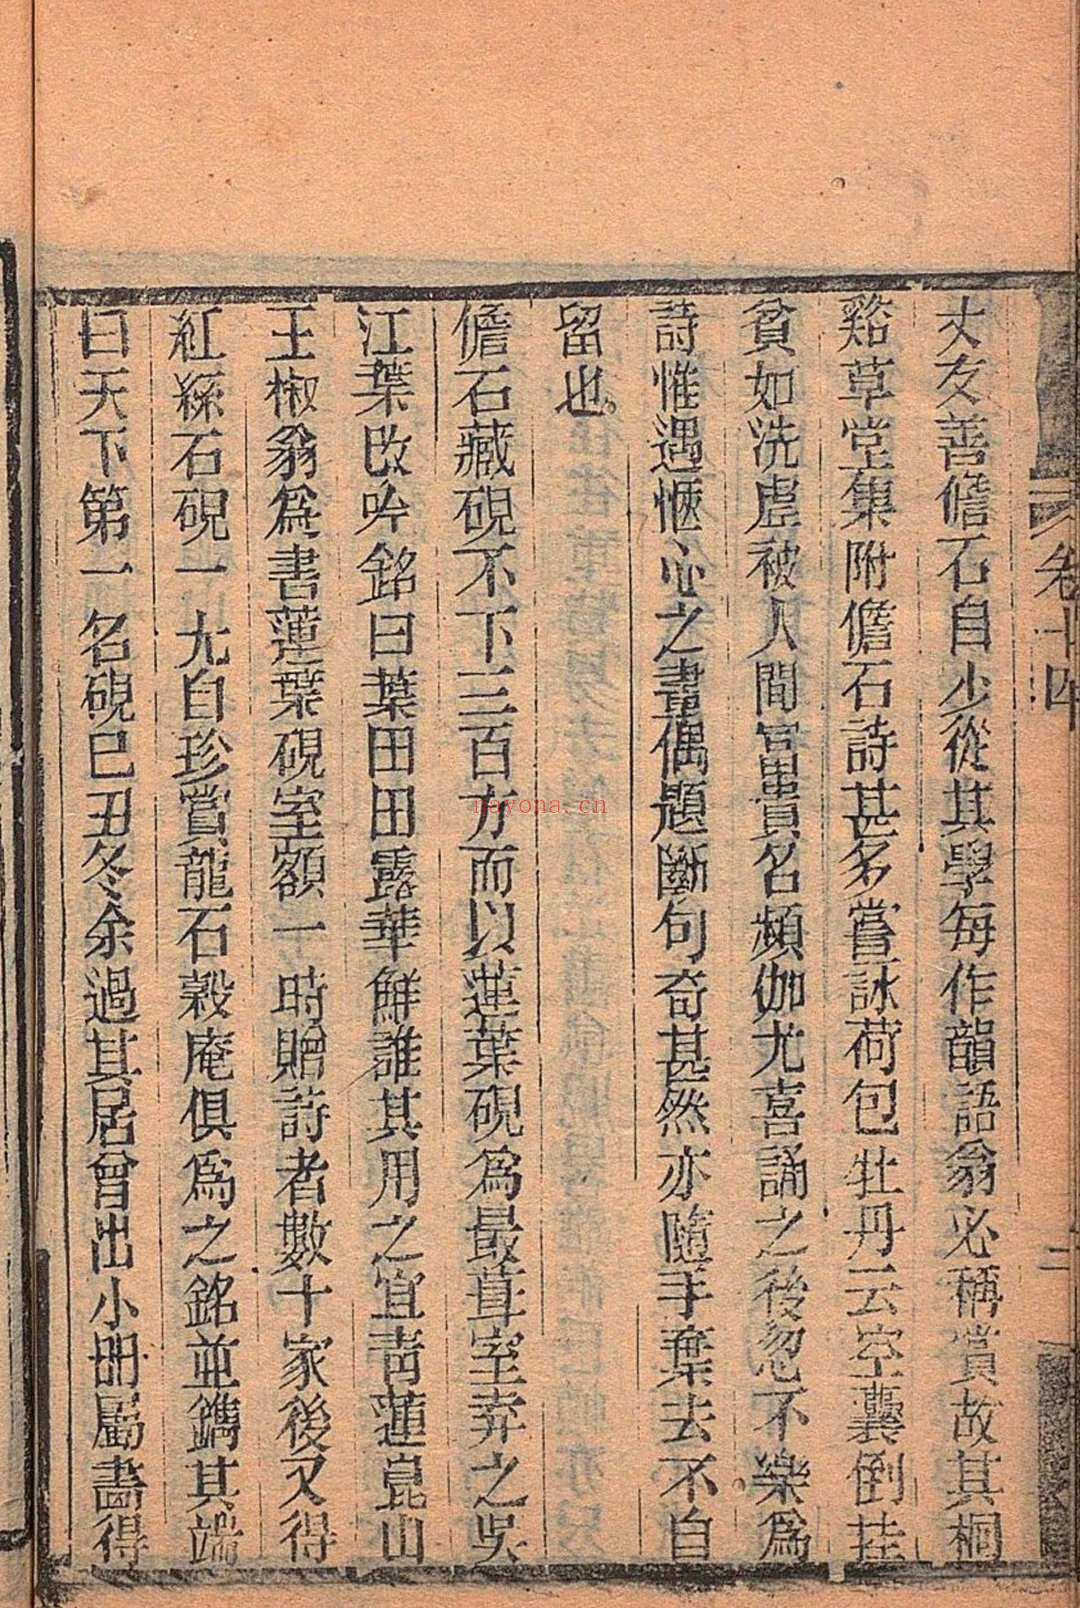 卷十四
二
丈友善儋石自少從其學每作韻語翁必稱賞故其桐
谿草堂集附儋石詩甚多嘗詠荷包牡丹云空囊倒挂
貧如洗虛被人間富貴名頻伽尤喜誦之後忽不樂爲
詩惟遇愜心之畫偶題斷句奇甚然亦隨手棄去不自
留也
儋石藏硯不下三百方而以蓮葉硯爲最葺室弆之吳
江葉改吟銘曰葉田田露華鮮誰其用之宜靑蓮崑山
王椒翁爲書蓮葉硯室額一時贈詩者數十家後又得
紅絲石硯一尤自珍嘗龍石穀庵俱爲之銘並鐫其端
曰天下第一名硯巳丑冬余過其居曾出小冊屬畵得
nayona.cn